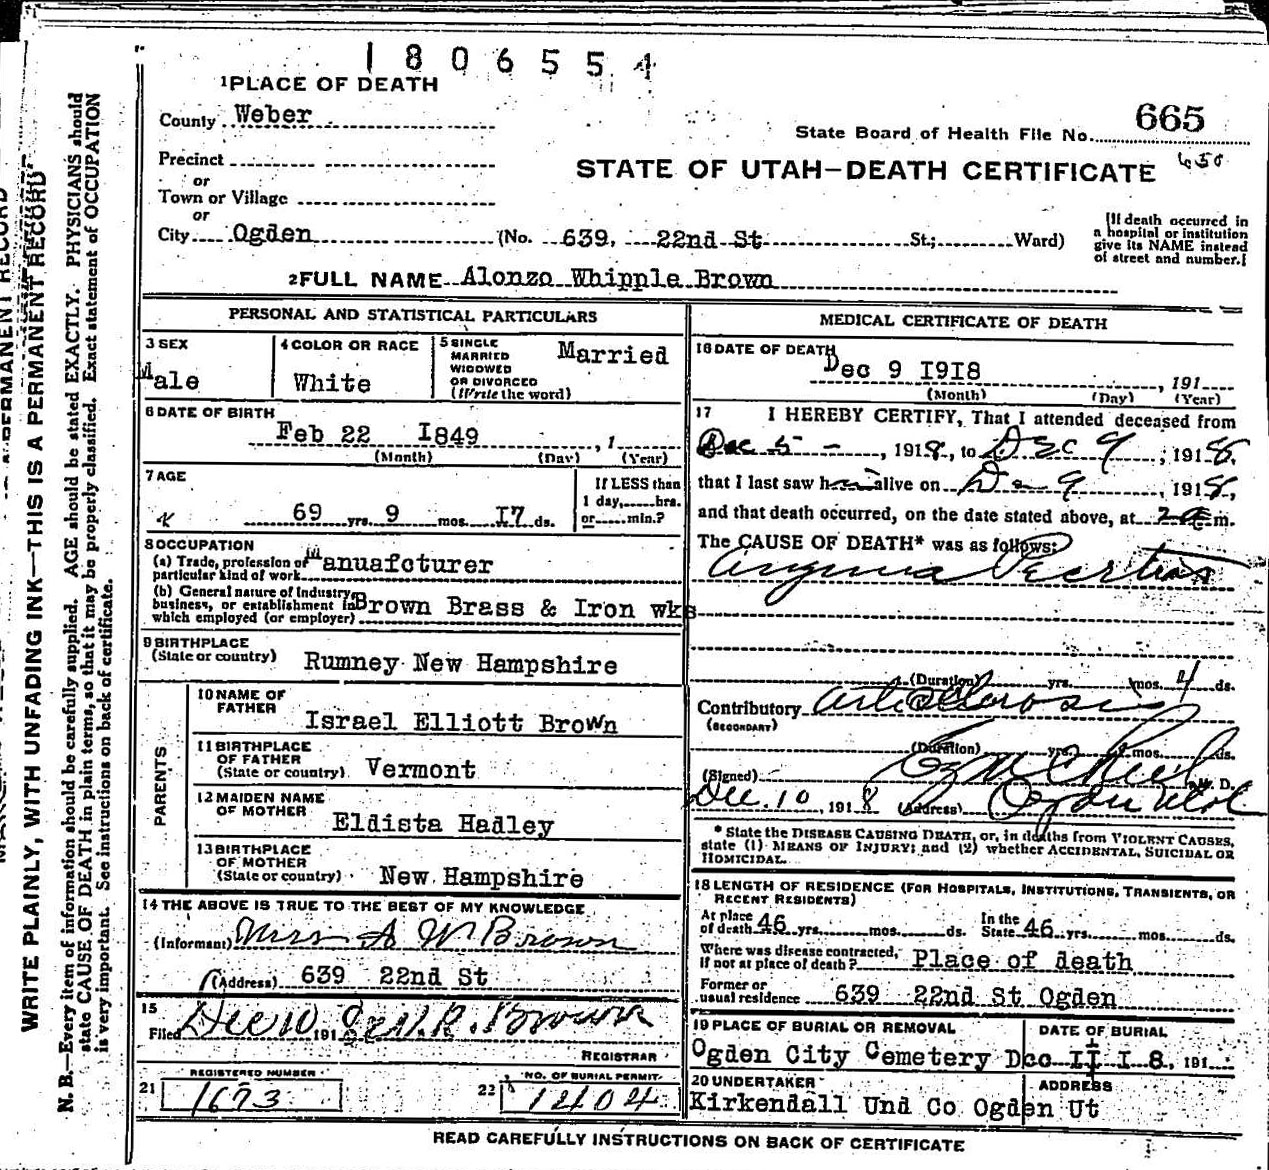 1806554
1 PLACE OF DEATH
County Weber
State Board of Health File No. 665
Precinct
STATE OF UTAH—DEATH CERTIFICATE
or
Town or Village
or
City Ogden (No. 639, 22nd St St.; Ward)
[If death occurred in
a hospital or institution
give its NAME instead
of street and number.]
2 FULL NAME Alonzo Whipple Brown
PERSONAL AND STATISTICAL PARTICULARS
3 SEX
Male
4 COLOR OR RACE
White
5 SINGLE
MARRIED
WIDOWED
OR DIVORCED
(Write the word)
Married
6 DATE OF BIRTH
Feb 22 I849 , 1
(Month) (Day) (Year)
7 AGE
69 yrs. 9 mos. I7 ds.
If LESS than
1 day, hrs.
or min.?
8 OCCUPATION
(a) Trade, profession or Manuafcturer
particular kind of work
(b) General nature of Industry,
business, or establishment in Brown Brass & Iron wks
which employed (or employer)
9 BIRTHPLACE
(State or country) Rumney New Hampshire
PARENTS
10 NAME OF
FATHER
Israel Elliott Brown
11 BIRTHPLACE
OF FATHER
(State or country) Vermont
12 MAIDEN NAME
OF MOTHER
Eldista Hadley
13 BIRTHPLACE
OF MOTHER
(State or country) New Hampshire
14 THE ABOVE IS TRUE TO THE BEST OF MY KNOWLEDGE
(Informant) Mrs A W Brown
(Address) 639 22nd St
15
Filed Dec 10 1918 Brown
REGISTRAR
REGISTERED NUMBER
21 1673
NO. OF BURIAL PERMIT
22 12404
MEDICAL CERTIFICATE OF DEATH
16 DATE OF DEATH
Dec 9 I9I8 , 191
(Month) (Day) (Year)
17 I HEREBY CERTIFY, That I attended deceased from
Dec 5 - , 1918, to Dec 9 , 1918,
that I last saw him alive on Dec 9 , 1918,
and that death occurred, on the date stated above, at m.
The CAUSE OF DEATH* was as follows:
Angina Pectoris
(Duration) yrs. mos. 4 ds.
Contributory
(SECONDARY)
(Duration) yrs. mos. ds.
(Signed) M. D.
Dec. 10, 1918 (Address) Ogden Utah
* State the DISEASE CAUSING DEATH, or, in deaths from VIOLENT CAUSES,
state (1) MEANS OF INJURY; and (2) whether ACCIDENTAL, SUICIDAL OR
HOMICIDAL.
18 LENGTH OF RESIDENCE (FOR HOSPITALS, INSTITUTIONS, TRANSIENTS, OR
RECENT RESIDENTS)
At place
of death 46 yrs. mos. ds.
In the
State 46 yrs. mos. ds.
Where was disease contracted,
if not at place of death? Place of death
Former or
usual residence 639 22nd St Ogden
19 PLACE OF BURIAL OR REMOVAL
Ogden City Cemetery
DATE OF BURIAL
Dec II I 8, 191
20 UNDERTAKER
ADDRESS
Kirkendall Und Co Ogden Ut
READ CAREFULLY INSTRUCTIONS ON BACK OF CERTIFICATE
WRITE PLAINLY, WITH UNFADING INK—THIS IS A PERMANENT RECORD
N. B.—Every item of information should be carefully supplied. AGE should be stated EXACTLY. PHYSICIANS should
state CAUSE OF DEATH in plain terms, so that it may be properly classified. Exact statement of OCCUPATION
is very important. See instructions on back of certificate.